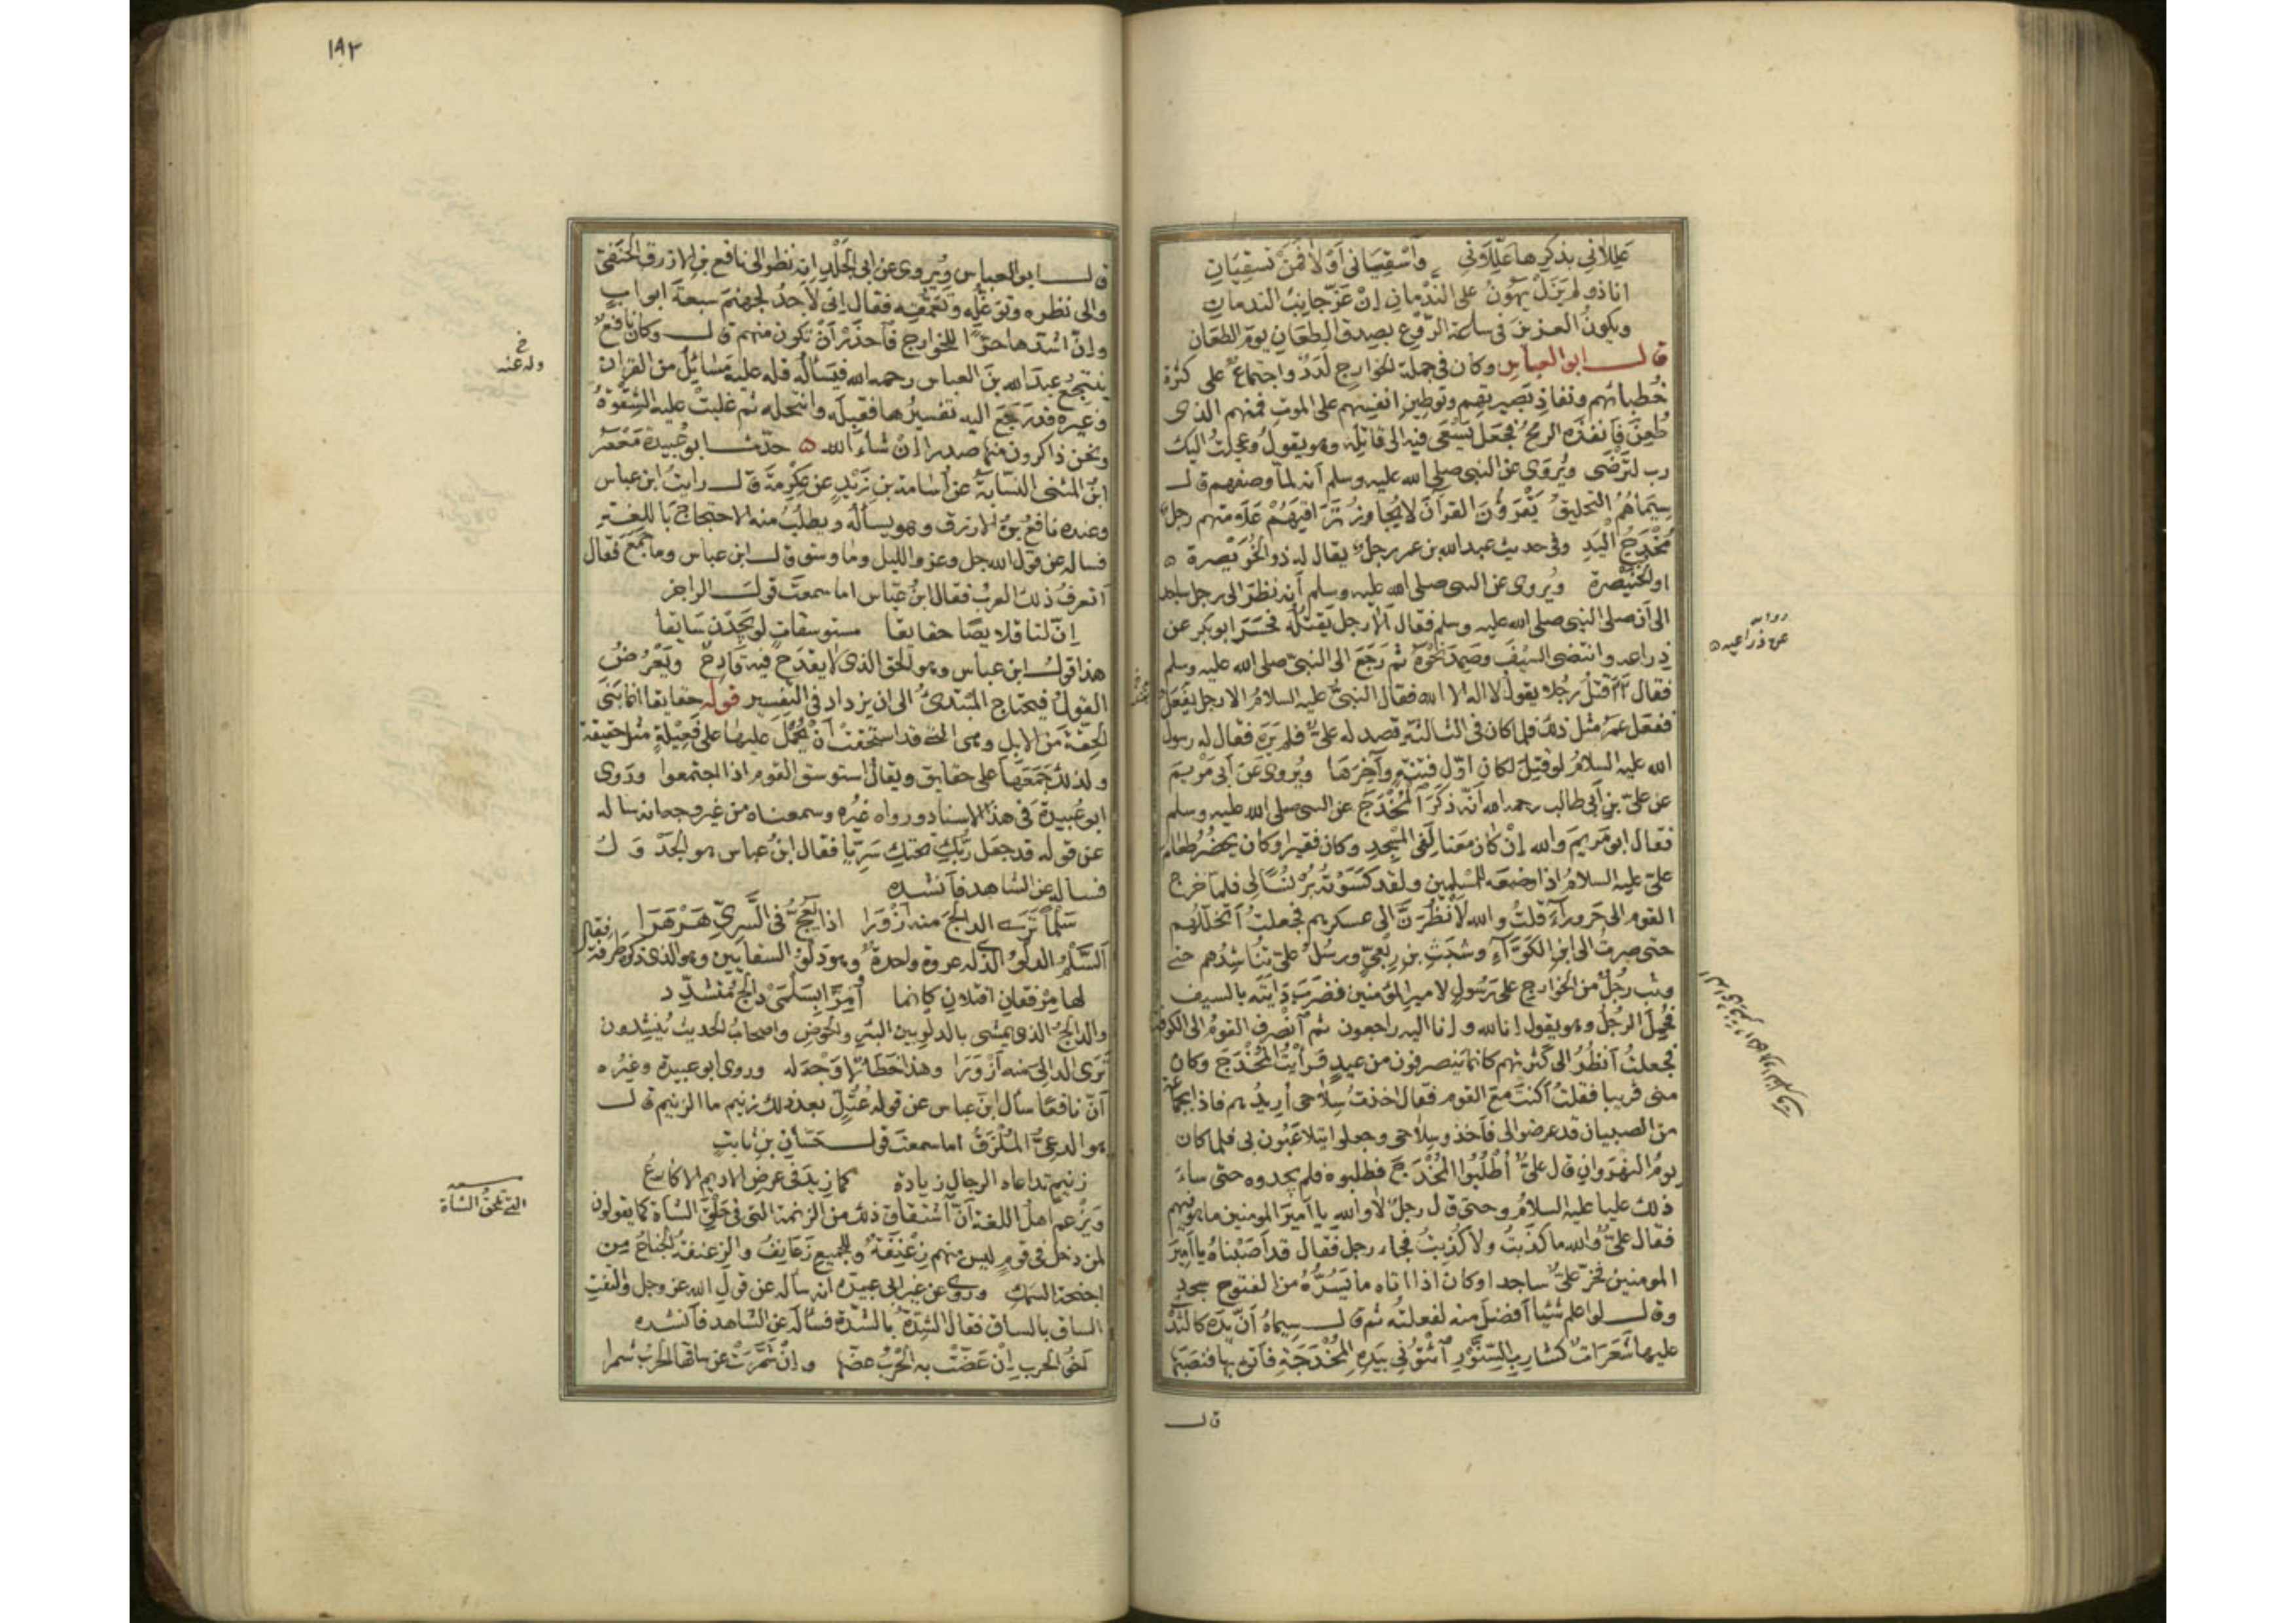 عللاني بذكرها عللاني واسقياني أولا فمن تسقيان
انا ذو لم يزل يهون على الندمان إن عز جانب الندمان
ويكون العزيز في ساعة الروع بصدق الطعان يوم الطعان
قال ابو العباس وكان في جملة الخوارج لدد واجتماع على كثرة
خطبائهم ونفاذ بصيرتهم وتوطين انفسهم على الموت فمنهم الذي
طعن فأنفذه الرمح فجعل يسعى فيه الى قاتله وهو يقول وعجلت اليك
رب لترضى ويروى عن النبي صلى الله عليه وسلم أنه لما وصفهم قال
سيماهم التحليق يقرؤون القرآن لا يجاوز تراقيهم علامتهم رجل
مخدج اليد وفي حديث عبد الله بن عمر رجل يقال له ذو الخويصرة ٥
او الخنيصرة ويروى عن النبي صلى الله عليه وسلم أنه نظر الى رجل ساجد
الى أن صلى النبي صلى الله عليه وسلم فقال ألا رجل يقتله فحسر ابو بكر عن
ذراعه وانتضى السيف وصمد نحوه ثم رجع الى النبي صلى الله عليه وسلم
فقال أأقتل رجلا يقول لا اله الا الله فقال النبي عليه السلام الا رجل يفعل
ففعل عمر مثل ذلك فلما كان في الثالثة قصد له علي فلم يره فقال له رسول
الله عليه السلام لو قتل لكان اول فتنة وآخرها ويروى عن أبي مريم
عن علي بن أبي طالب رحمه الله أنه ذكر المخدج عن النبي صلى الله عليه وسلم
فقال ابو مريم والله إن كان معنا لفي المسجد وكان فقيرا وكان يحضر طعام
علي عليه السلام اذا وضعه للمسلمين ولقد كسوته برنسا لي فلما خرج
القوم الى حروراء قلت والله لأنظرن الى عسكرهم فجعلت أتخللهم
حتى صرت الى ابن الكواء وشبث بن ربعي ورسل علي تناشدهم حتى
وثب رجل من الخوارج على رسول لامير المؤمنين فضرب دابته بالسيف
فحمل الرجل وهو يقول إنا لله وإنا اليه راجعون ثم انصرف القوم الى الكوفة
فجعلت أنظر الى كثرتهم كانما ينصرفون من عيد فرأيت المخدج وكان
مني قريبا فقلت أكنت مع القوم فقال اخذت سلاحي أريدهم فاذا بجماعة
من الصبيان قد عرضوا لي فأخذوا سلاحي وجعلوا يتلاعبون بي فلما كان
يوم النهروان قال علي أطلبوا المخدج فطلبوه فلم يجدوه حتى ساء
ذلك عليا عليه السلام وحتى قال رجل لا والله يا أمير المومنين ما هو فيهم
فقال علي والله ما كذبت ولا كذبت فجاء رجل فقال قد أصبناه يا أمير
المومنين فخر علي ساجدا وكان اذا اتاه ما يسره من الفتوح سجد
وقال لو اعلم شيئا أفضل منه لفعلته ثم قال سيماه أن يده كالثدي
عليها شعرات كشارب السنور ائتوني بيده المخدجة فأتوه بها فنصبها
قال
عن ذراعيه ٥
١٩٢
قال ابو العباس ويروى عن ابي الجلد انه نظر الى نافع بن الازرق الحنفي
والى نظره وتوغله وتعمقه فقال إني لأجد لجهنم سبعة ابواب
وإن اشدها حرا للخوارج فاحذر أن تكون منهم قال وكان نافع
ينتجع عبد الله بن العباس رحمه الله فيسأله فله عليه مسائل من القران
وغيره قد رجع اليه تفسيرها فقبله وانتحله ثم غلبت عليه الشقوة
ونحن ذاكرون منها صدرا إن شاء الله ٥ حدثنا ابو عبيدة معمر
ابن المثنى النسابة عن أسامة بن زيد عن عكرمة قال رايت ابن عباس
وعنده نافع بن الازرق وهو يسأله ويطلب منه الاحتجاج باللغة
فساله عن قول الله جل وعز والليل وما وسق قال ابن عباس وما جمع فقال
أتعرف ذلك العرب فقال ابن عباس اما سمعت قول الراجز
إن لنا قلايصا حقايقا مستوسقات لو يجدن سايقا
هذا قول ابن عباس وهو الحق الذي لا يقدح فيه قادح ويعرض
القول فيحتاج المبتدئ الى ان يزداد في التفسير قوله حقايقا انما بنى
الحقة من الابل وهي التي قد استحقت أن يحمل عليها على فعيلة مثل حقيقة
ولذلك جمعها على حقايق ويقال استوسق القوم اذا اجتمعوا وروى
ابو عبيدة في هذا الاسناد ورواه غيره وسمعناه من غير وجه انه ساله
عن قوله قد جعل ربك تحتك سريا فقال ابن عباس هو الجدول
فساله عن الشاهد فأنشده
سلما ترى الدالج منه أزورا اذا يعج في السري هرهرا
السلم الدلو الذي له عروة واحدة وهو دلو السقايين وهو الذي ذكره طرفة فقال
لها مرفقان افتلان كانما أمرا بسلمي دالج متشدد
والدالج الذي يمشي بالدلو بين البئر والحوض واصحاب الحديث ينشدون
ترى الدالي منه أزورا وهذا خطأ لا وجه له وروى ابو عبيدة وغيره
أن نافعا سأل ابن عباس عن قوله عتل بعد ذلك زنيم ما الزنيم قال
هو الدعي الملزق اما سمعت قول حسان بن ثابت
زنيم تداعاه الرجال زيادة كما زيد في عرض الاديم الاكارع
ويزعم اهل اللغة أن اشتقاق ذلك من الزنمة التي في حلق الشاة كما يقولون
لمن دخل في قوم ليس منهم زعنفة وللجميع زعانف والزعنفة الجناح من
اجنحة السمك وروي عن غير ابي عبيدة أنه سأله عن قول الله عز وجل والتفت
الساق بالساق فقال الشدة بالشدة فسأله عن الشاهد فأنشده
أخو الحرب إن عضت به الحرب عضها وإن شمرت عن ساقها الحرب شمرا